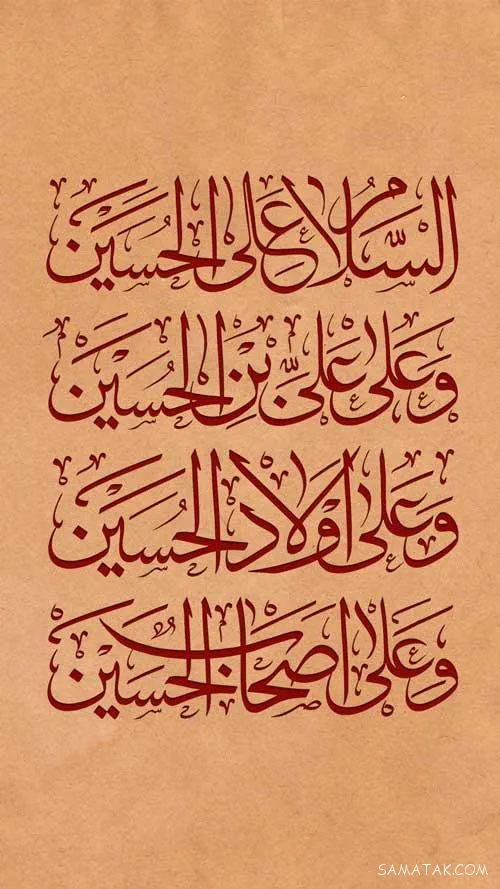 السَّلامُ عَلَى الحُسَيْن
وَعَلى عَلِيِّ بْنِ الحُسَيْن
وَعَلى اَوْلادِ الحُسَيْن
وَعَلى اَصْحابِ الحُسَيْن
SAMATAK.COM